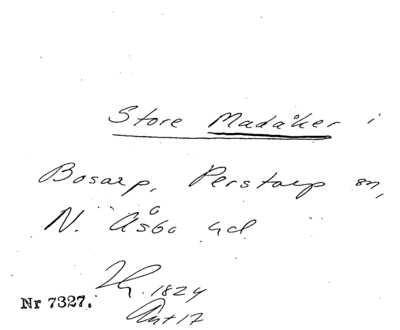 Store Madåker i
Bosarp, Perstorp sn,
N. Åsbo hd
1824
Nr 7327.
Akt 17